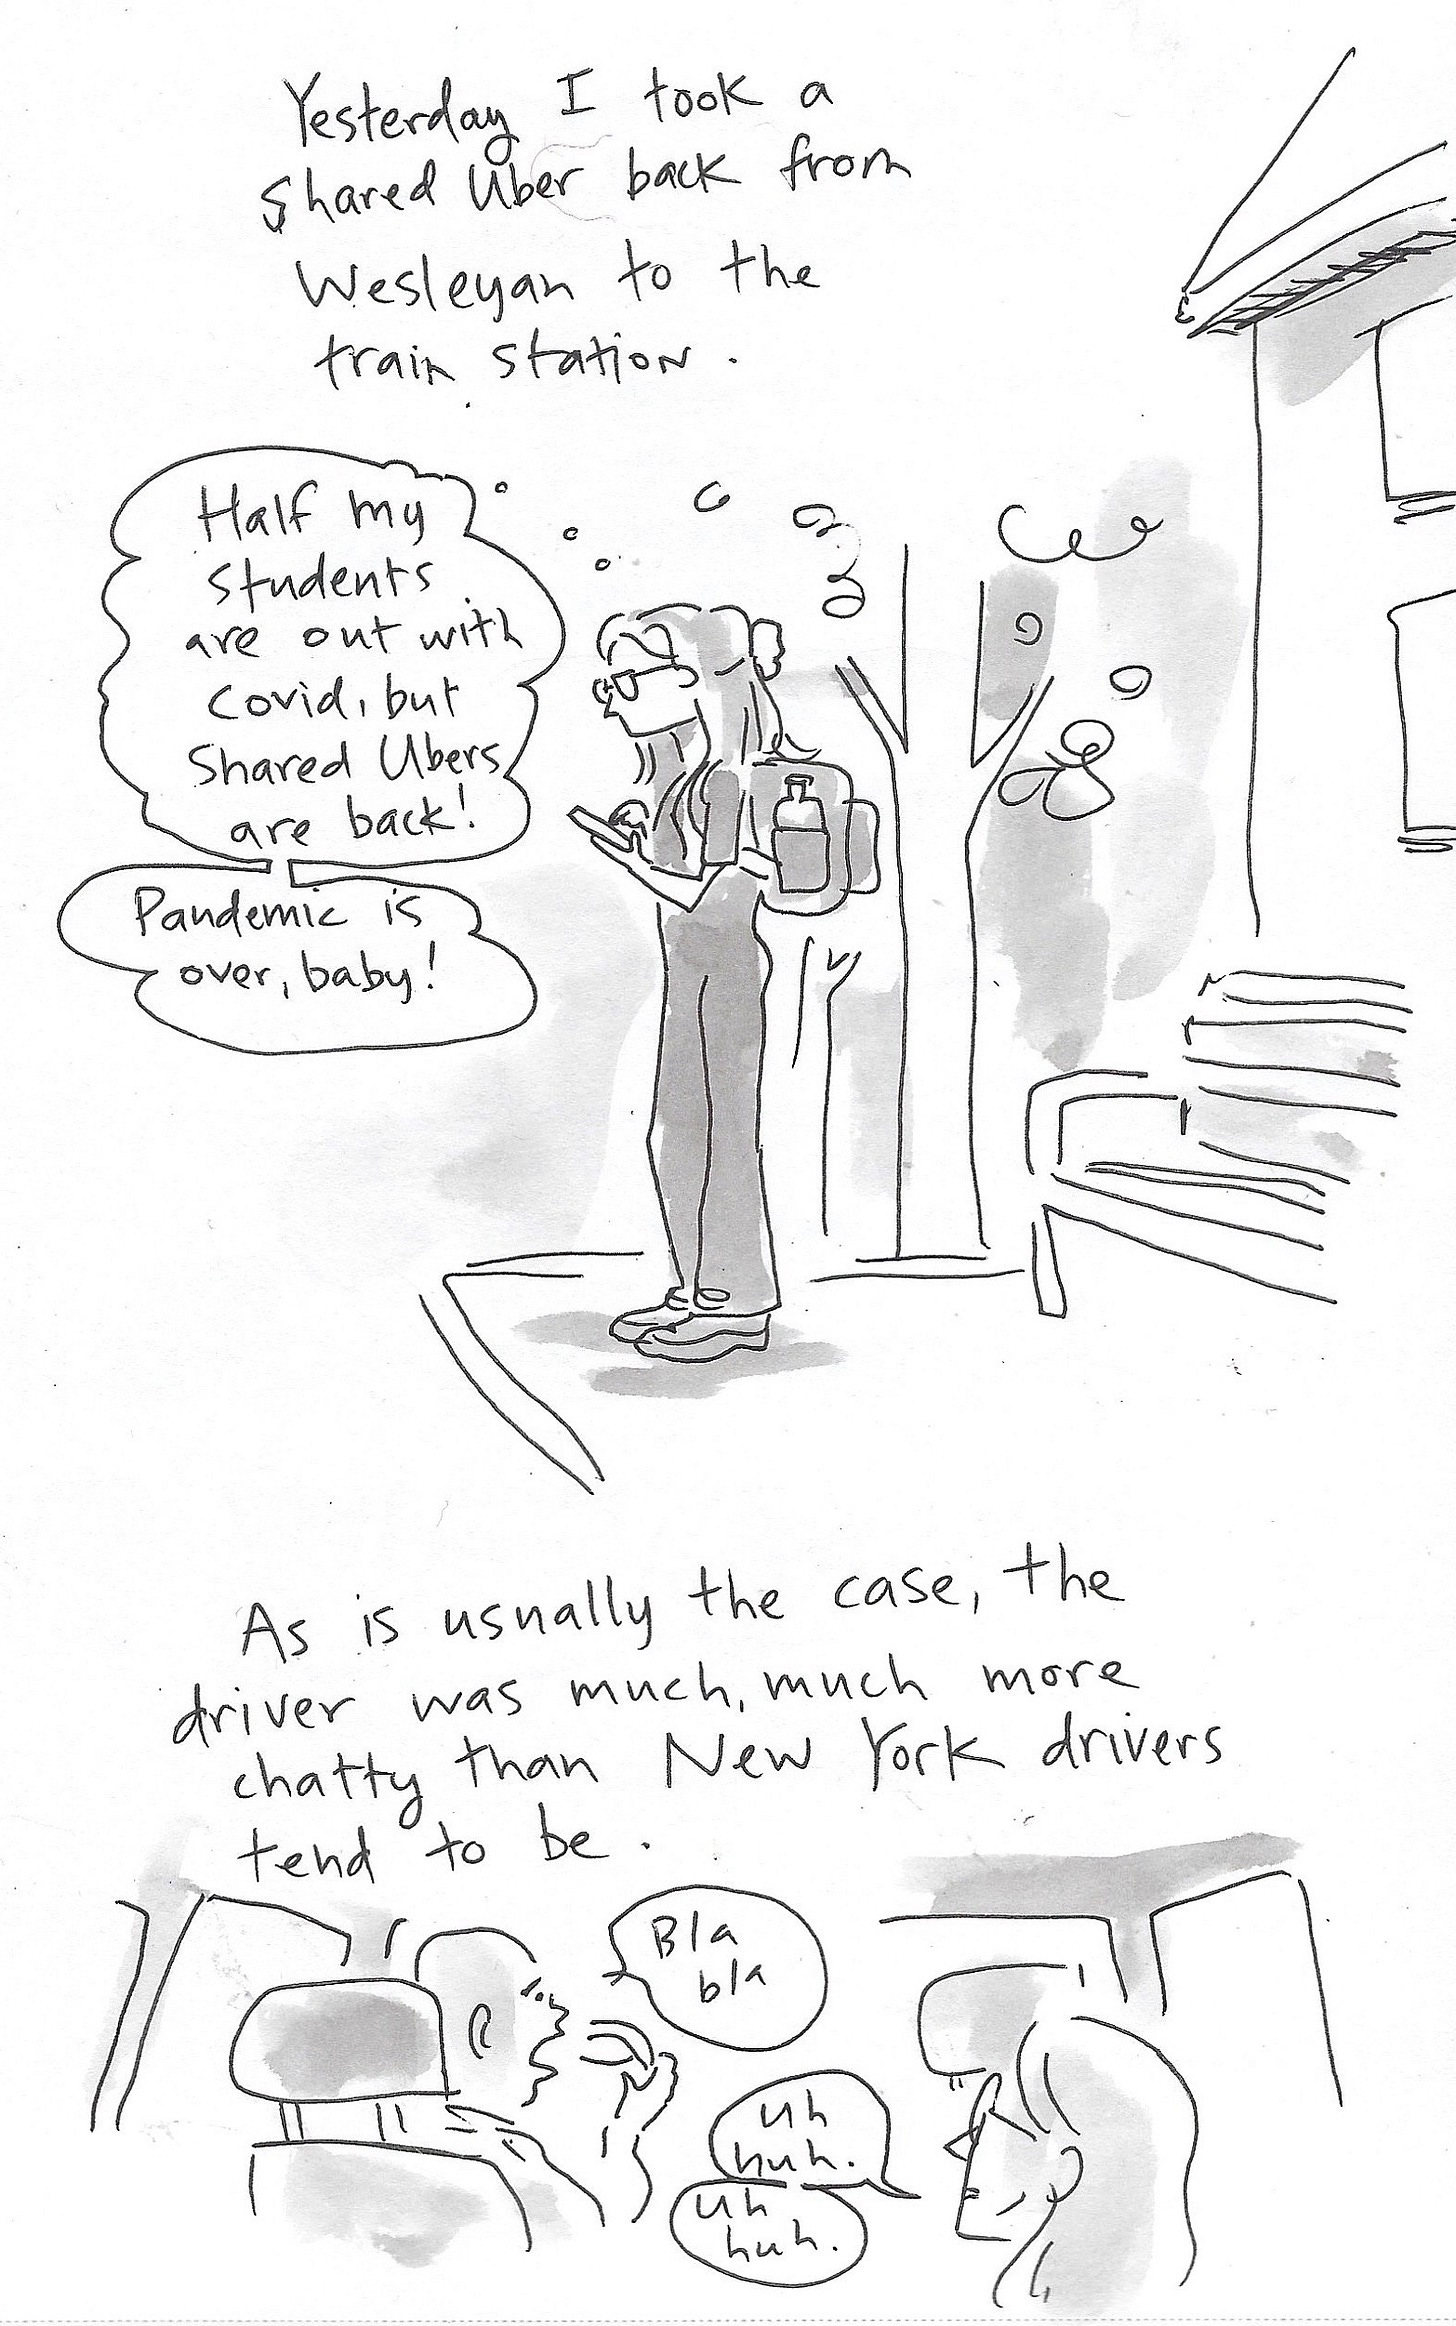 Yesterday I took a
shared Uber back from
Wesleyan to the
train station.
Half my
students
are out with
covid, but
shared Ubers
are back!
Pandemic is
over, baby!
As is usually the case, the
driver was much, much more
chatty than New York drivers
tend to be.
Bla
bla
Uh
huh.
Uh
huh.